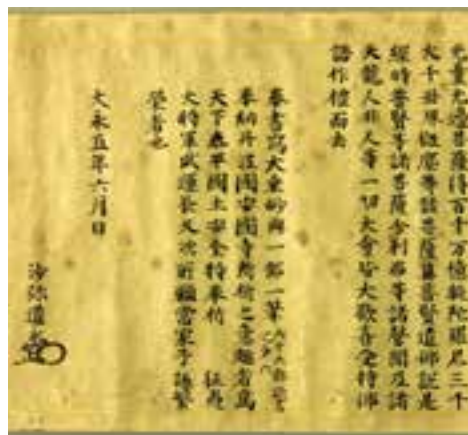 无量无邊菩薩得百千万億旋陀羅尼三千
大千世界微塵等諸菩薩具普賢道佛說是
經時普賢等諸菩薩舍利弗等諸聲聞及諸
天龍人非人等一切大會皆大歡喜受持佛
語作禮而去
奉書寫大乘妙典一部一筆
奉納丹波國安國寺所之意趣者為
天下泰平國土安全特奉祈 征夷
大將軍武運長久次祈當家子孫繁
榮者也
大永五年六月日
沙弥道